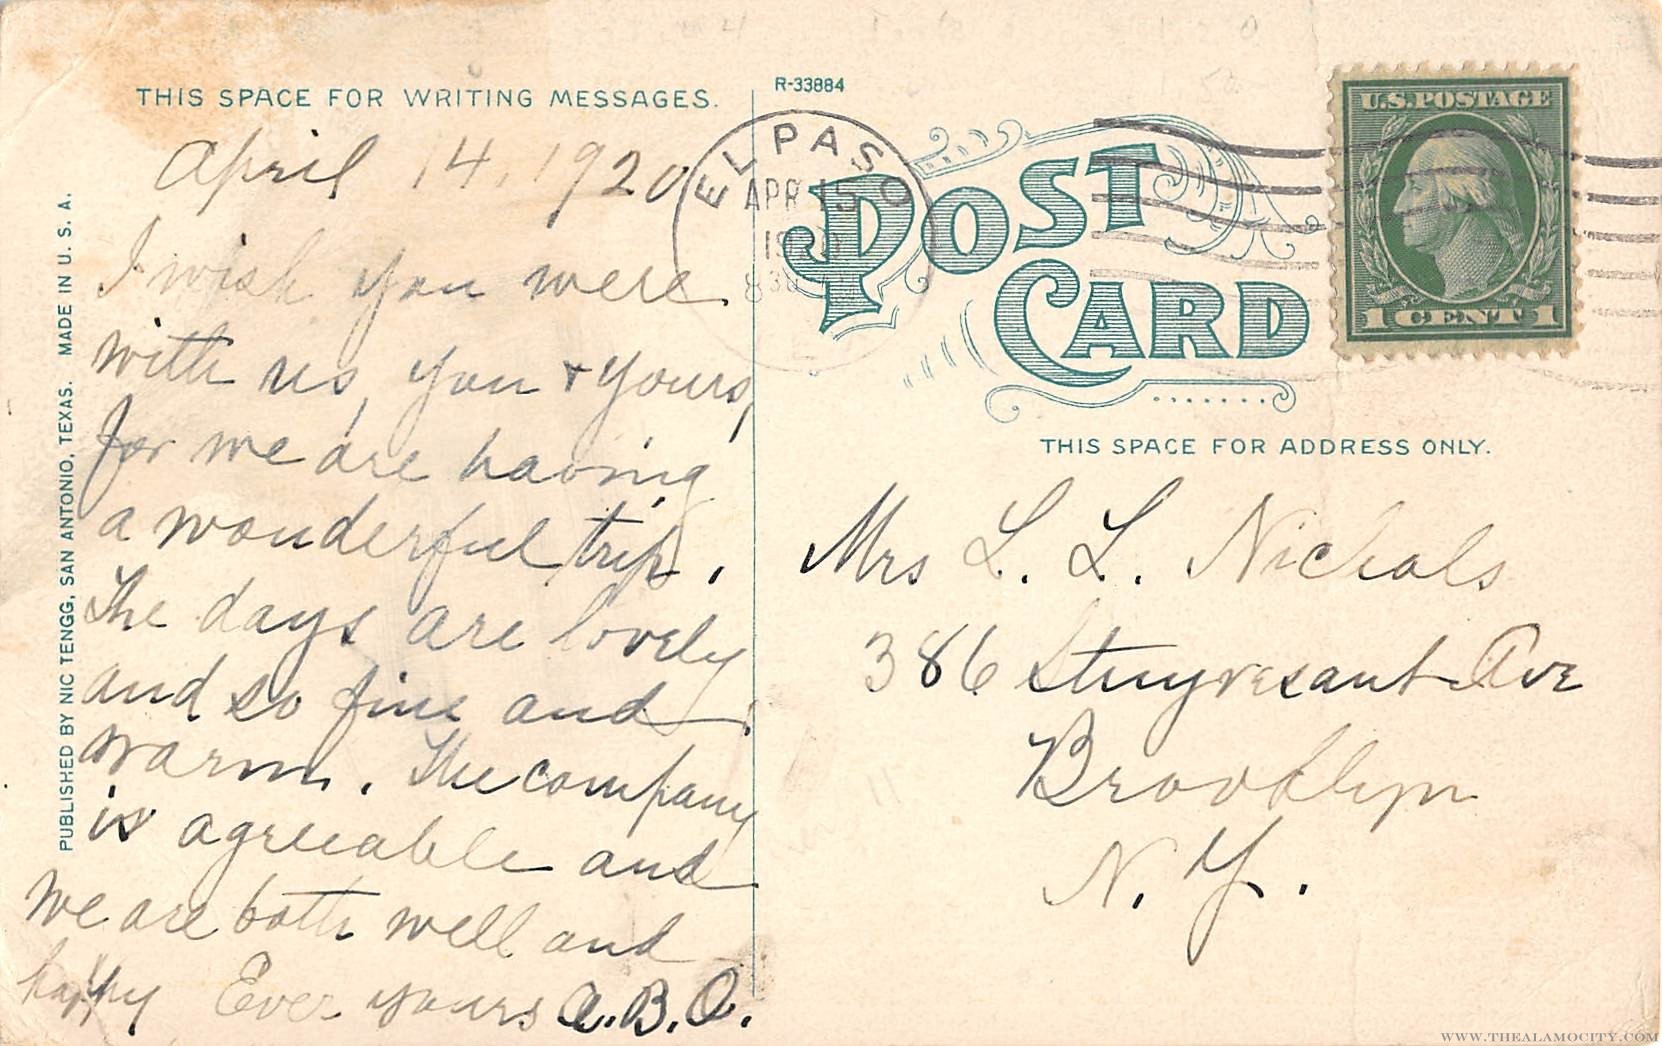 THIS SPACE FOR WRITING MESSAGES.
April 14, 1920
I wish you were
with us, you + yours,
for we are having
a wonderful trip.
The days are lovely
and so fine and
warm. The company
is agreeable and
we are both well and
happy Ever yours A.B.O.
PUBLISHED BY NIC TENGG, SAN ANTONIO, TEXAS. MADE IN U. S. A.
R-33884
EL PASO
APR 15
POST
CARD
U.S. POSTAGE
1 CENT 1
THIS SPACE FOR ADDRESS ONLY.
Mrs L. L. Nichols
386 Stuyvesant Ave
Brooklyn
N. Y.
WWW.THEALAMOCITY.COM